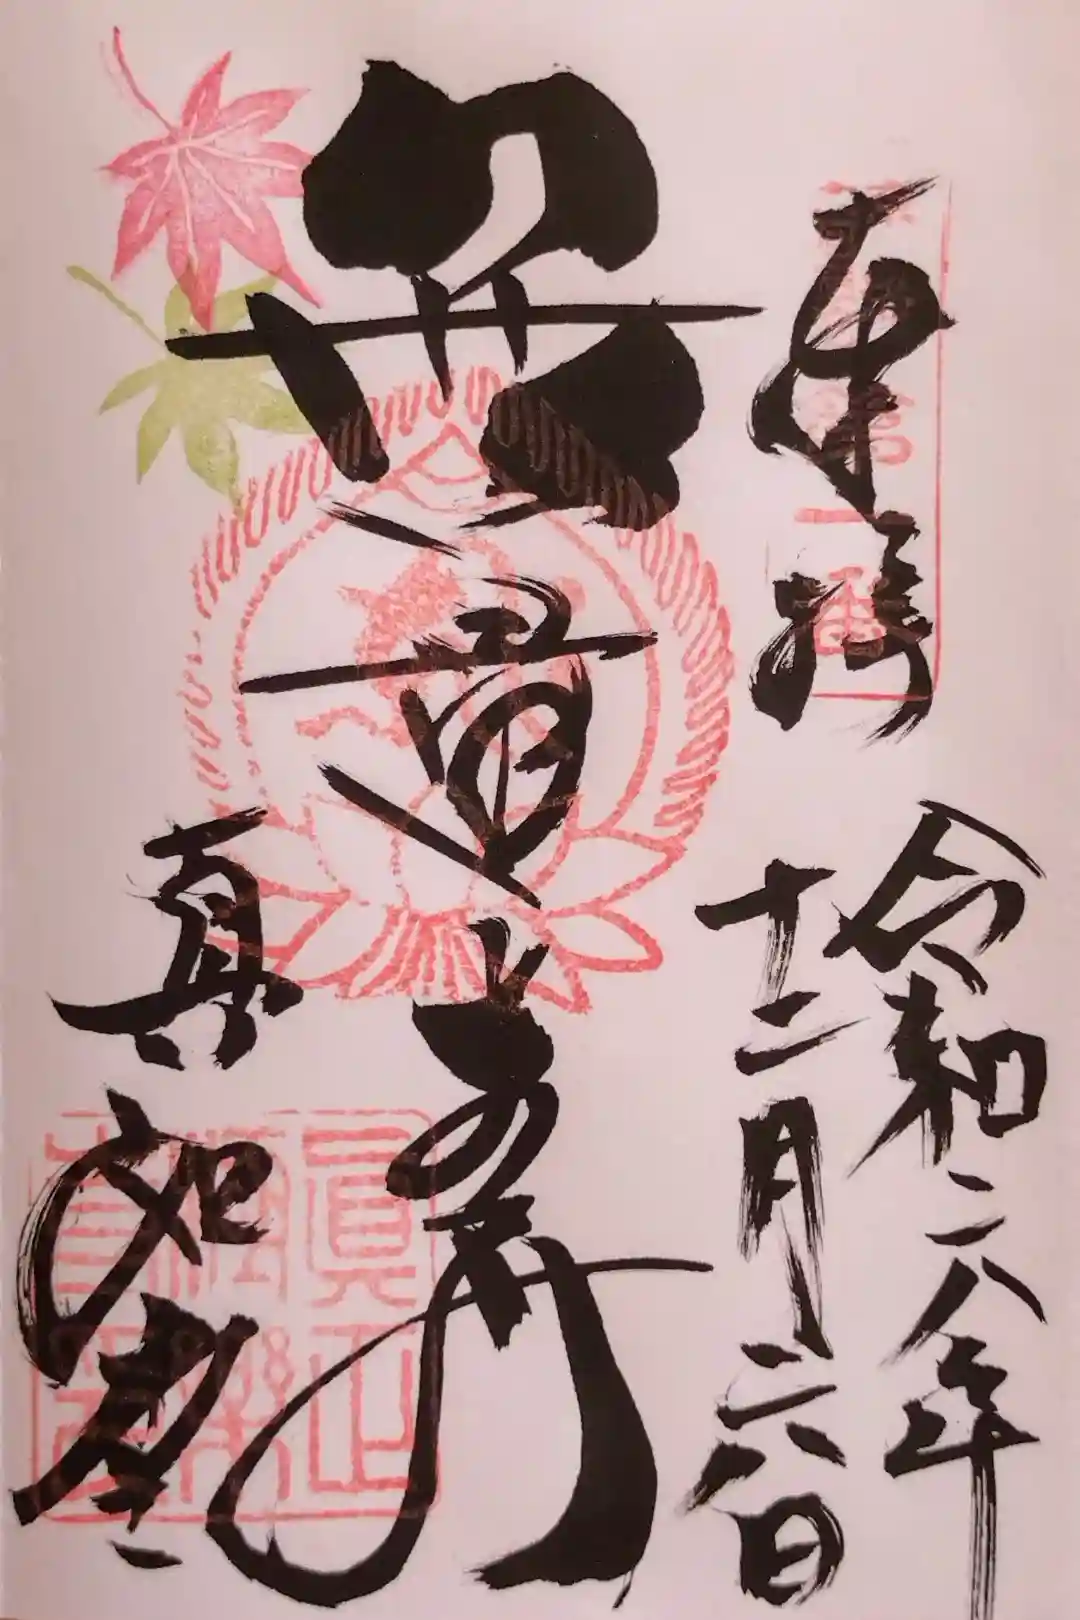 奉拝
令和六年
十二月六日
無量寿
真如堂
第一番